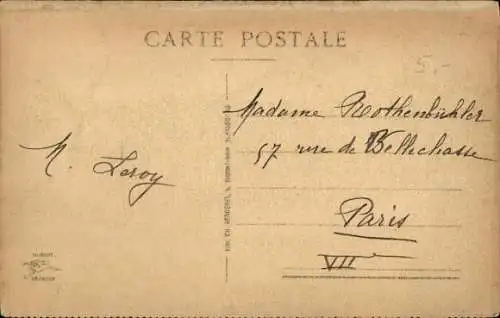 CARTE POSTALE
5.-
M. Leroy
Madame Rothenbühler
57 rue de Bellechasse
Paris
VIIe